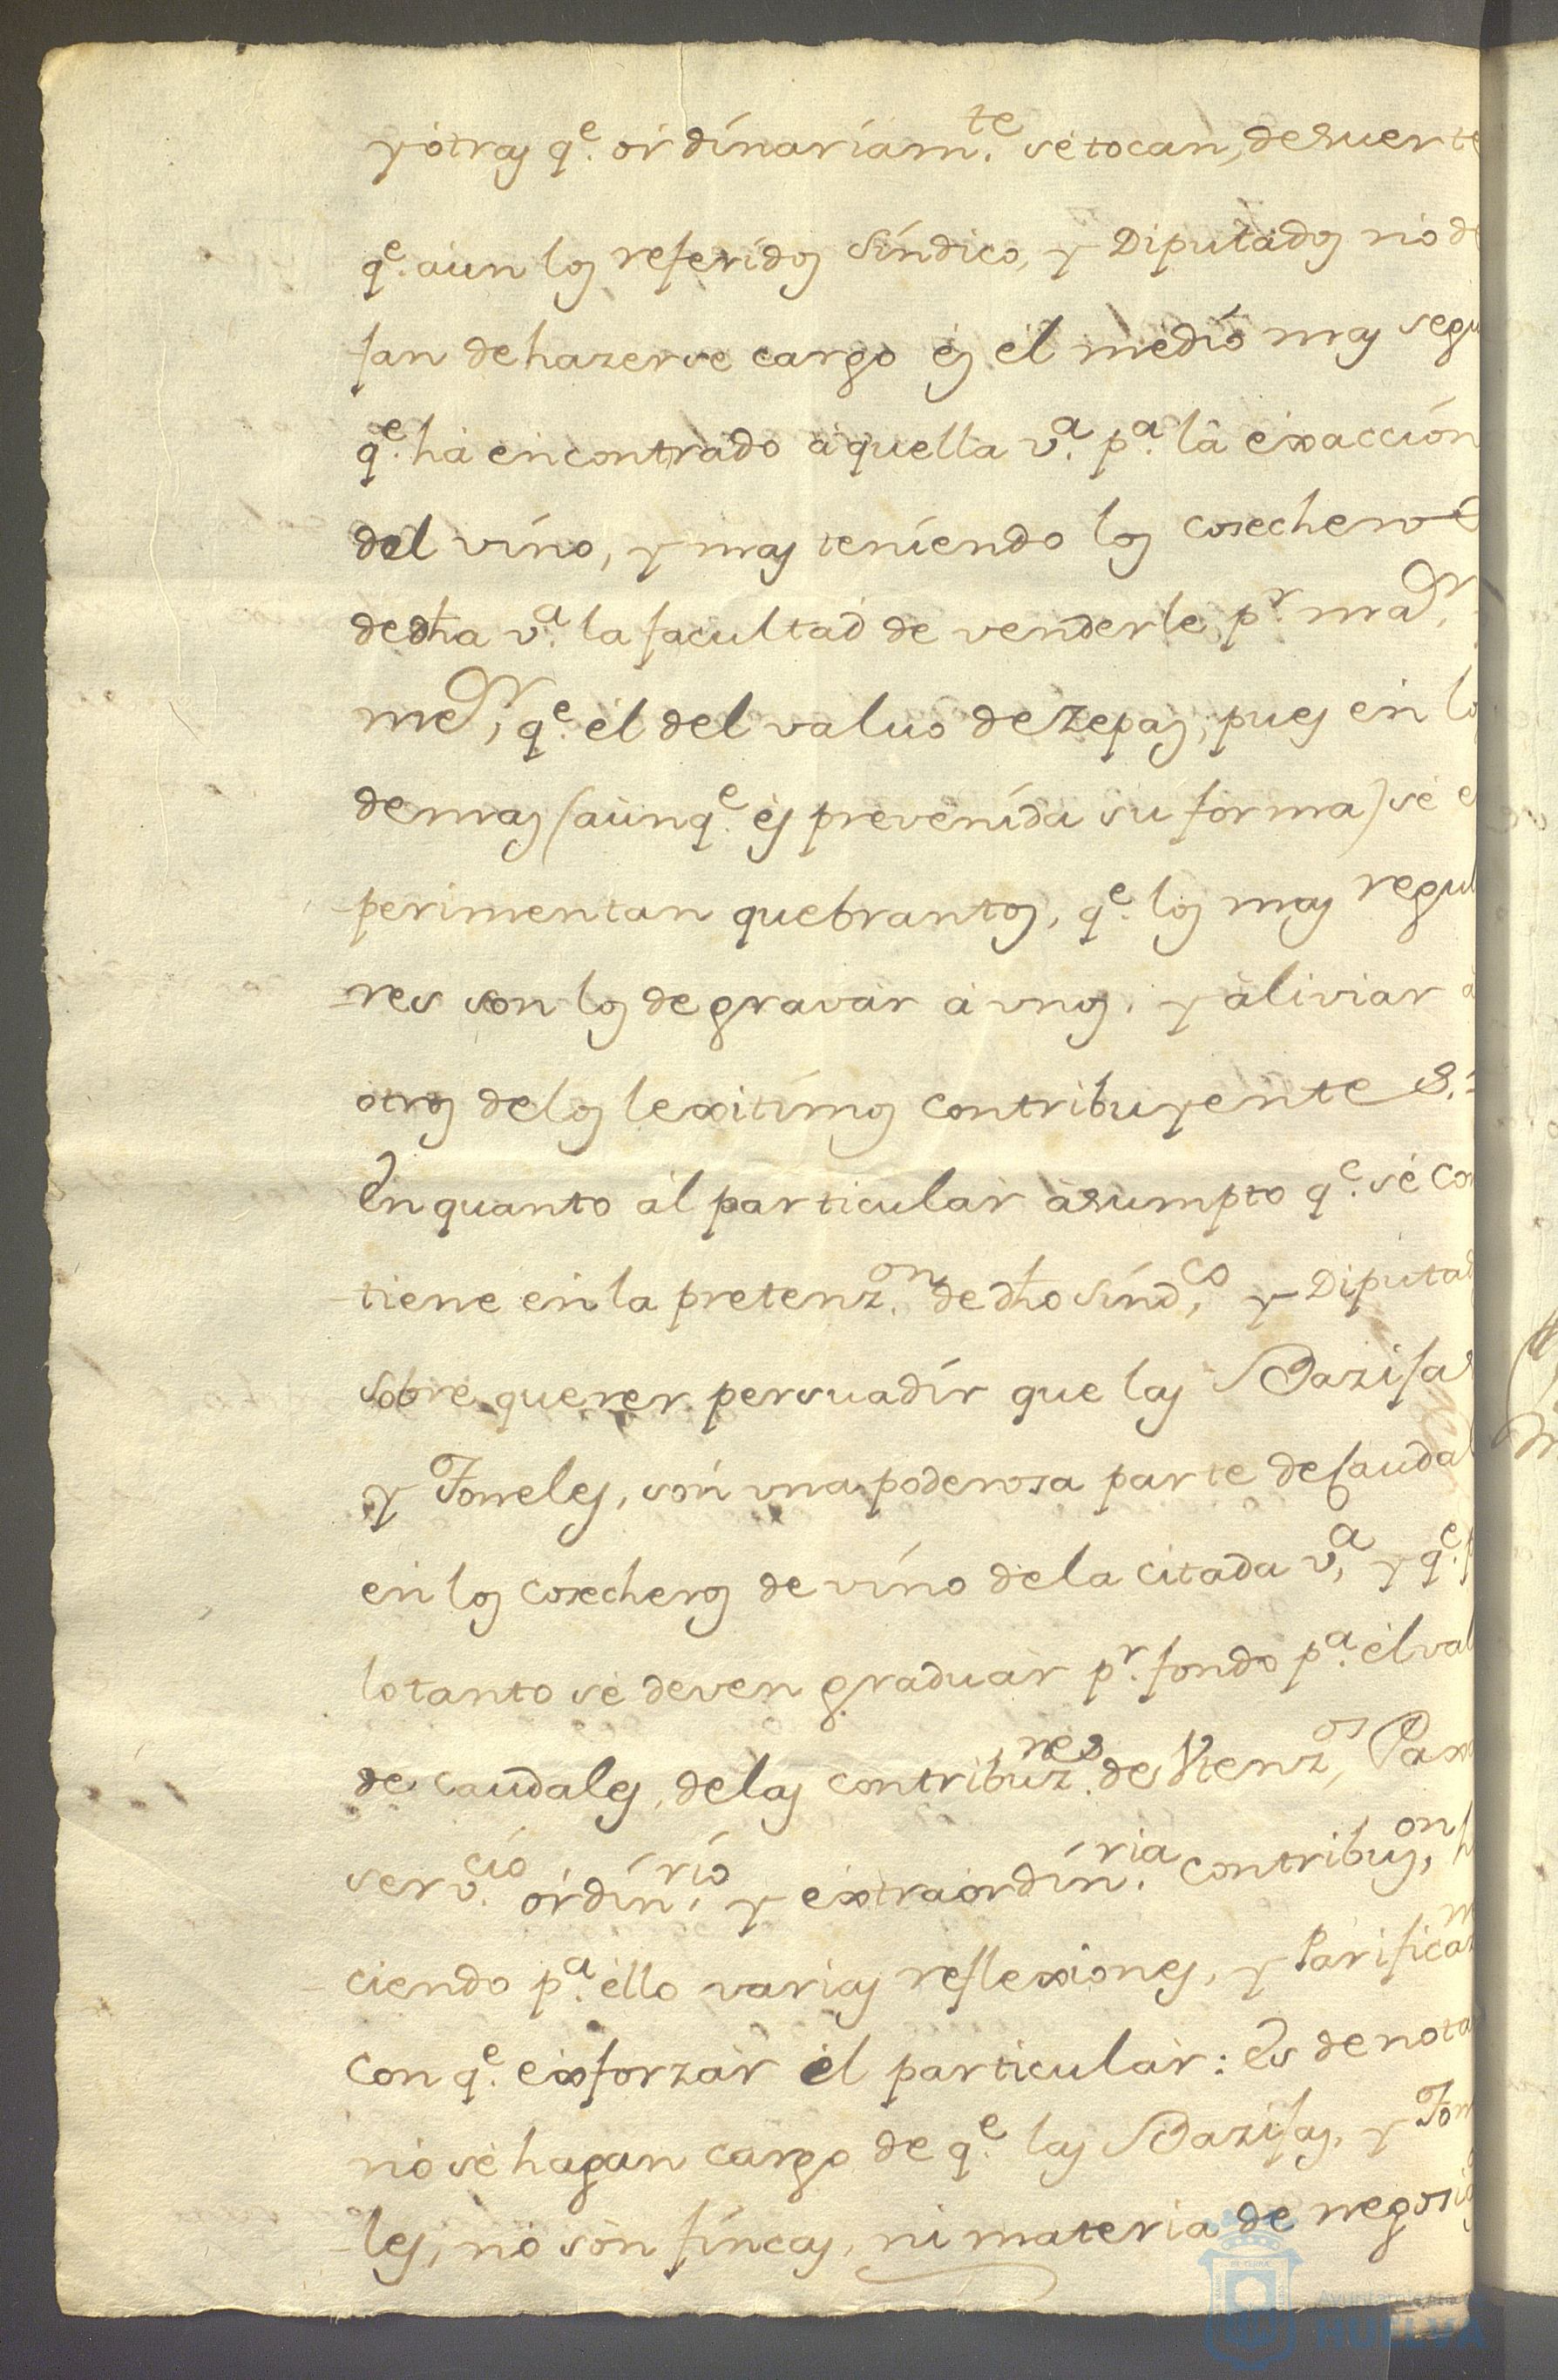 y otras q.e ordinariam.te se tocan, de suerte
q.e aun los referidos Síndico, y Diputados no de
jan de hazerse cargo es el medio mas segu
q.e ha encontrado aquella v.a p.a la exacción
del vino, y mas teniendo los cosecheros
de dha v.a la facultad de venderle p.r
q.e el del valuo de zepas, pues en lo
demas (aunq.e es prevenida su forma) se e
perimentan quebrantos, q.e los mas regul
res son los de gravar a unos, y aliviar a
otros de los lexitimos contribuyentes.=
En quanto al particular asumpto q.e se con
tiene en la pretenz.on de dho sínd.co y Diputad
sobre querer persuadir que las Bazijas
y Toneles, son una poderosa parte de caudal
en los cosecheros de vino de la citada v.a y q.e p
lo tanto se deven graduar p.r fondo p.a el val
de caudales, de las contribuz.nes de Utenz.os Pax
serv.cio ordin.rio y extraordin.ria contribuz.on h
ciendo p.a ello varias reflexiones, y Parificaz
con q.e exforzar el particular: Es de nota
no se hagan cargo de q.e las Bazijas, y Ton
les, no son fincas, ni materia de negosi
HUELVA